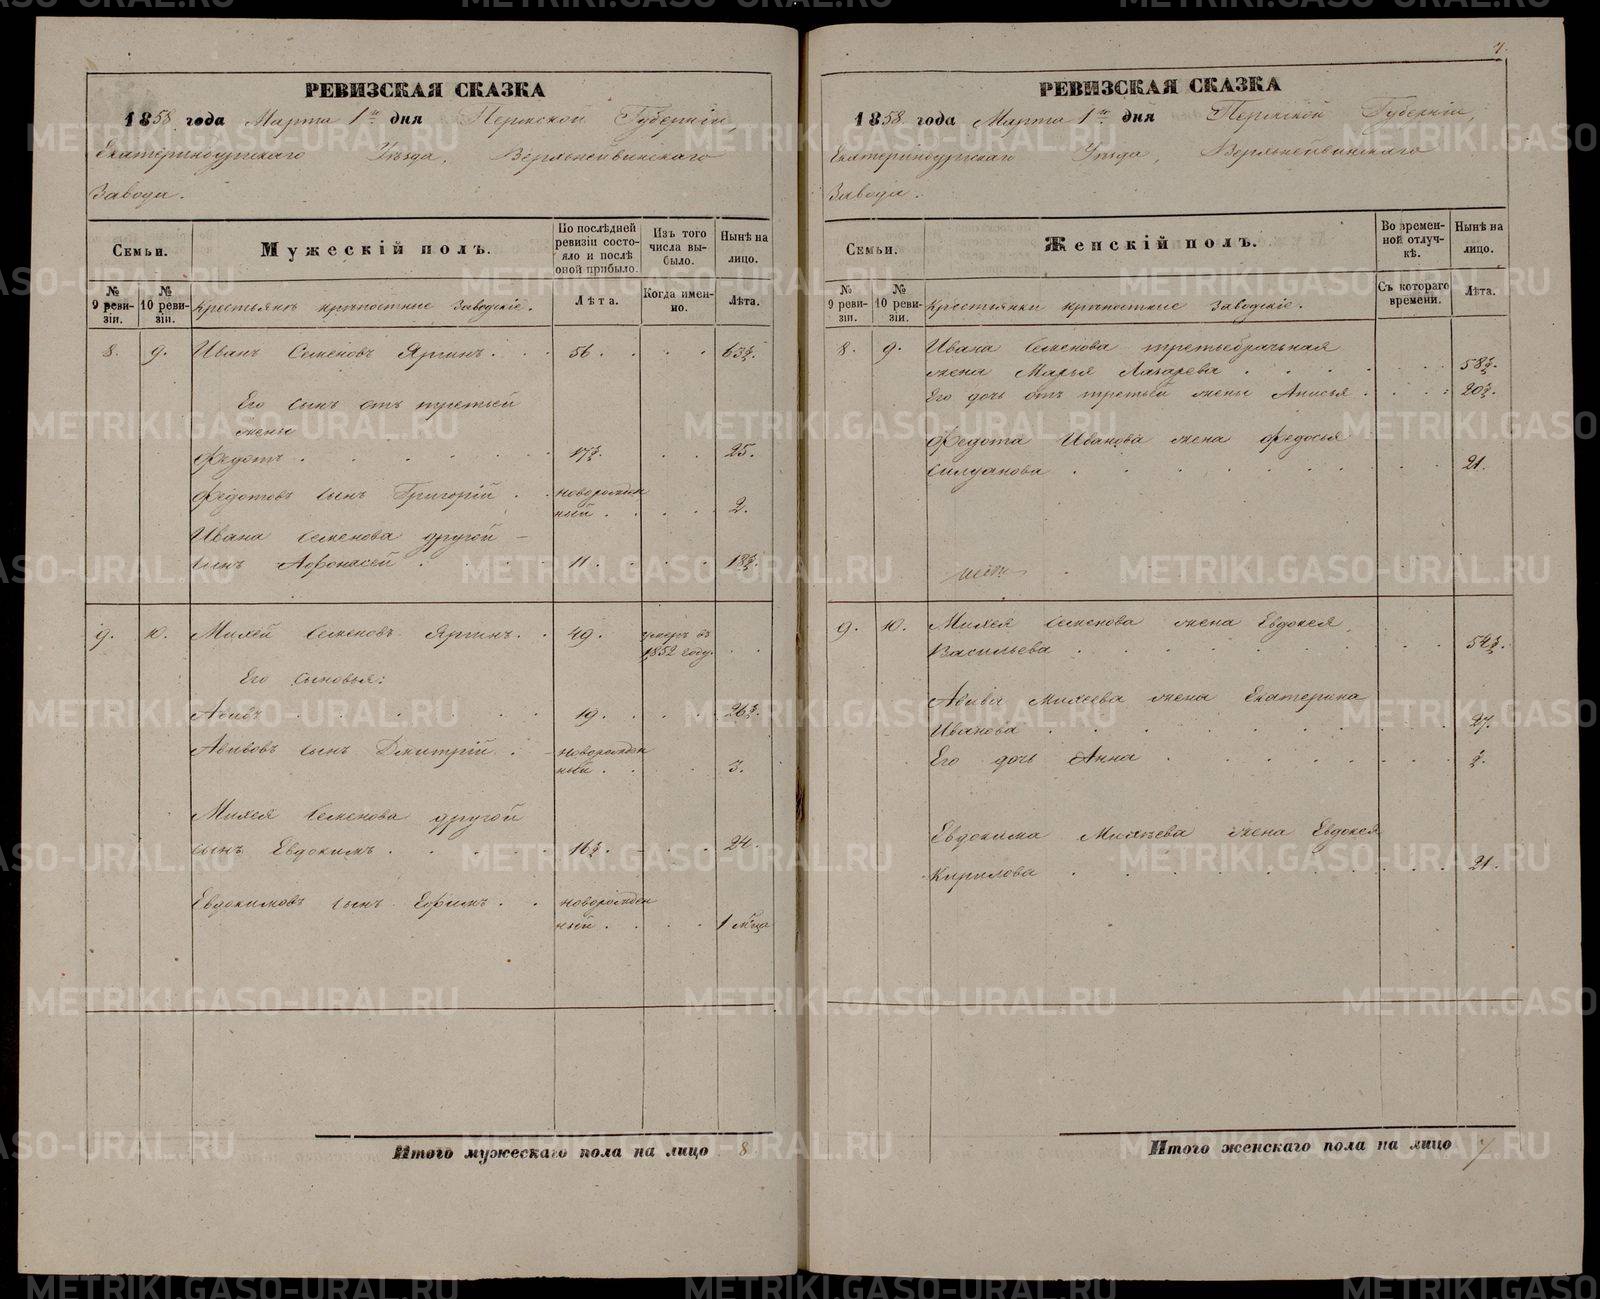 РЕВИЗСКАЯ СКАЗКА
1858 года Марта 1го дня Пермской Губерніи,
Екатеринбургскаго Уѣзда, Верхнейвинскаго
Завода.
Семьи.
Мужескій полъ.
По послѣдней ревизіи состояло и послѣ оной прибыло.
Изъ того числа выбыло.
Нынѣ на лицо.
№ 9 ревизіи.
№ 10 ревизіи.
Крестьянъ крѣпостные Заводскіе.
Лѣта.
Когда именно.
Лѣта.
8. 9. Иванъ Семеновъ Яргинъ. 56.
Его сынъ отъ третьей
жены
Федотъ. 25.
Федотовъ сынъ Григорій новорожден
ный. 2.
Ивана Семенова другой
сынъ Афонасей 11.
9. 10. Михей Семеновъ Яргинъ. 49. умеръ въ
1852 году.
Его сыновья:
19.
сынъ Дмитрій новорожден
ный. 3.
Михея Семенова другой
сынъ Евдокимъ. 24.
Евдокимовъ сынъ Ефимъ. новорожден
ный. 1 мца
Итого мужескаго пола на лицо 8
7.
РЕВИЗСКАЯ СКАЗКА
1858 года Марта 1го дня Пермской Губерніи,
Екатеринбургскаго Уѣзда, Верхнейвинскаго
Завода.
Семьи.
Женскій полъ.
Во временной отлучкѣ.
Нынѣ на лицо.
№ 9 ревизіи.
№ 10 ревизіи.
Крестьянки крѣпостные Заводскіе.
Съ котораго времени.
Лѣта.
8. 9. Ивана Семенова третьебрачная
жена Марья Лазарева
Его дочь отъ третьей жены Анисья
Федота Иванова жена Федосья
Силуанова 21.
9. 10. Михея Семенова жена Евдокея
Васильева
Михеева жена Екатерина
Иванова 27.
Его дочь Анна
Евдокима Михѣева жена Евдокея
Кирилова 21.
Итого женскаго пола на лицо 7
METRIKI.GASO-URAL.RU